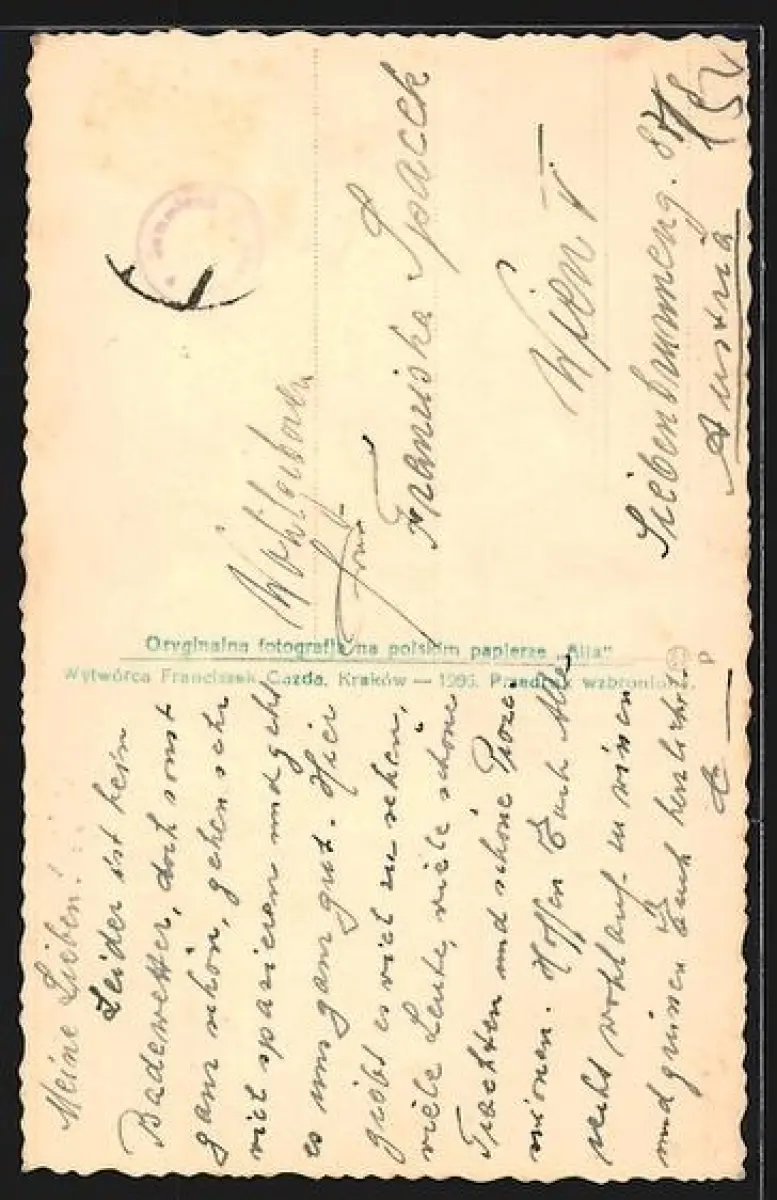 Meine Lieben!
Leider ist kein
Badewetter, doch sonst
ganz schön, gehen sehr
viel spazieren und geht
es uns ganz gut. Hier
gibt es viel zu sehen,
viele Leute, viele schöne
Trachten und schöne Proze-
ssionen. Hoffen Euch Alle
recht wohlauf zu wissen
und grüssen Euch herzlichst
Oryginalna fotografja na polskim papierze „Alfa"
Wytwórca Franciszek Gazda, Kraków — Przedruk wzbroniony.
Wohlgeboren
Frau
Franziska Spacek
Wien V
Siebenbrunneng.
Austria